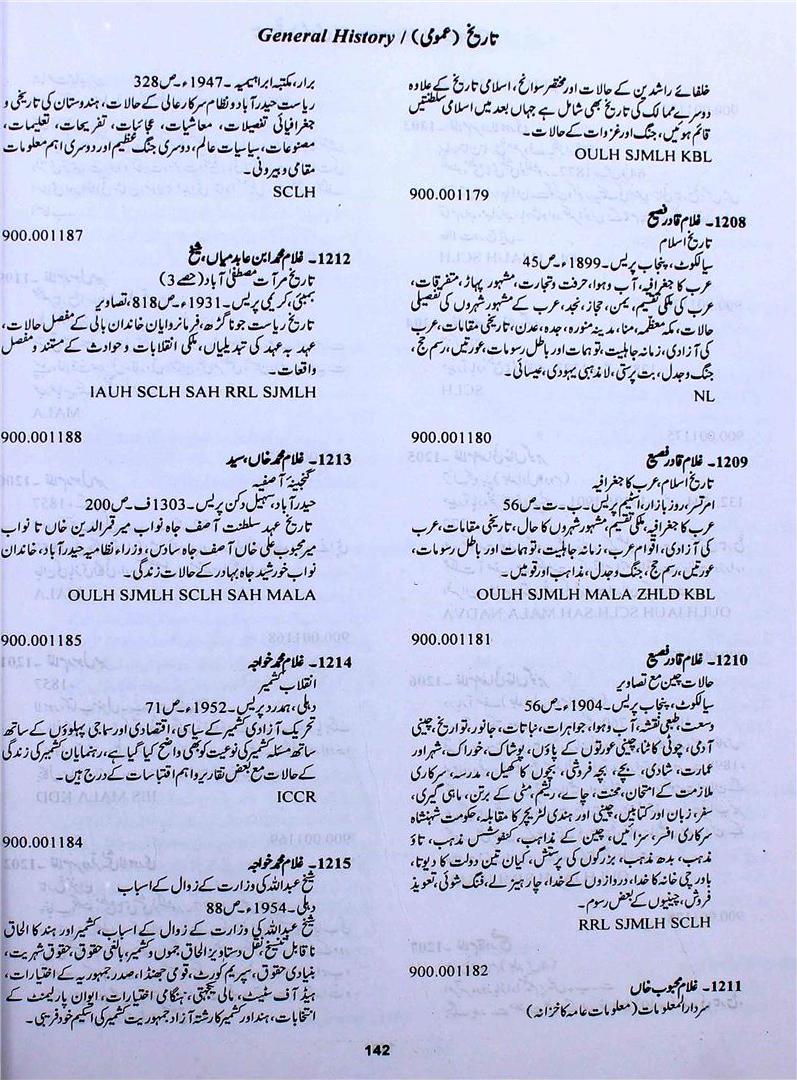 تاریخ (عمومی) / General History
خلفائے راشدین کے حالات اور مختصر سوانح، اسلامی تاریخ کے علاوہ
دوسرے ممالک کی تاریخ بھی شامل ہے جہاں بعد میں اسلامی سلطنتیں
قائم ہوئیں، جنگ اور غزوات کے حالات۔
OULH SJMLH KBL
900.001179
1208۔ غلام قادر فصیح
تاریخ اسلام
سیالکوٹ، پنجاب پریس۔ 1899ء۔ ص 45
عرب کا جغرافیہ، آب و ہوا، حرفت و تجارت، مشہور پہاڑ، متفرقات،
عرب کی ملکی تقسیم، یمن، حجاز، نجد، عرب کے مشہور شہروں کی تفصیلی
حالات، مکہ معظمہ، منا، مدینہ منورہ، جدہ، عدن، تاریخی مقامات، عرب
کی آزادی، زمانہ جاہلیت، توہمات اور باطل رسومات، عورتیں، رسم حج،
جنگ و جدل، بت پرستی، لامذہبی یہودی، عیسائی۔
NL
900.001180
1209۔ غلام قادر فصیح
تاریخ اسلام، عرب کا جغرافیہ
امرتسر، روز بازار، اسٹیم پریس۔ ب۔ت۔ ص 56
عرب کا جغرافیہ، ملکی تقسیم، مشہور شہروں کا حال، تاریخی مقامات، عرب
کی آزادی، اقوام عرب، زمانہ جاہلیت، توہمات اور باطل رسومات،
عورتیں، رسم حج، جنگ و جدل، مذاہب اور قومیں۔
OULH SJMLH MALA ZHLD KBL
900.001181
1210۔ غلام قادر فصیح
حالات چین مع تصاویر
سیالکوٹ، پنجاب پریس۔ 1904ء۔ ص 56
وسعت، طبعی نقشہ، آب و ہوا، جواہرات، نباتات، جانور، تواریخ، چینی
آدمی، چوٹی کاٹنا، چینی عورتوں کے پاؤں، پوشاک، خوراک، شہر اور
عمارت، شادی، بچے، بچہ فروشی، بچوں کا کھیل، مدرسہ، سرکاری
ملازمت کے امتحان، محنت، چاے، ریشم، مٹی کے برتن، ماہی گیری،
سفر، زبان اور کتابیں، چینی اور ہندی لٹریچر کا مقابلہ، حکومت شہنشاہ
سرکاری افسر، سزائیں، چین کے مذاہب، کنفوشس مذہب، تاؤ
مذہب، بدھ مذہب، بزرگوں کی پرستش، کیان تین دولت کا دیوتا،
باورچی خانہ کا خدا، دروازوں کے خدا، چار ہیزلے، فنگ شوئی، تعویذ
فروش، چینیوں کے بعض رسوم۔
RRL SJMLH SCLH
900.001182
1211۔ غلام محبوب خاں
سردار المعلومات (معلومات عامہ کا خزانہ)
برار، مکتبہ ابراہیمیہ۔ 1947ء۔ ص 328
ریاست حیدرآباد و نظام سرکار عالی کے حالات، ہندوستان کی تاریخی و
جغرافیائی تفصیلات، معاشیات، عجائبات، تفریحات، تعلیمات،
مصنوعات، سیاسیات عالم، دوسری جنگ عظیم اور دوسری اہم معلومات
مقامی و بیرونی۔
SCLH
900.001187
1212۔ غلام محمد ابن عابد میاں، شیخ
تاریخ مرآت مصطفی آباد (حصے 3)
بمبئی، کریمی پریس۔ 1931ء۔ ص 818، تصاویر
تاریخ ریاست جونا گڑھ، فرمانروایان خاندان بابی کے مفصل حالات،
عہد بہ عہد کی تبدیلیاں، ملکی انقلابات و حوادث کے مستند و مفصل
واقعات۔
IAUH SCLH SAH RRL SJMLH
900.001188
1213۔ غلام محمد خاں، سید
گنجینۂ آصفیہ
حیدرآباد، سہیل دکن پریس۔ 1303ف۔ ص 200
تاریخ عہد سلطنت آصف جاہ نواب میر قمر الدین خاں تا نواب
میر محبوب علی خاں آصف جاہ سادس، وزراء نظامیہ حیدرآباد، خاندان
نواب خورشید جاہ بہادر کے حالات زندگی۔
OULH SJMLH SCLH SAH MALA
900.001185
1214۔ غلام محمد خواجہ
انقلاب کشمیر
دہلی، ہمدرد پریس۔ 1952ء۔ ص 71
تحریک آزادی کشمیر کے سیاسی، اقتصادی اور سماجی پہلوؤں کے ساتھ
ساتھ مسئلہ کشمیر کی نوعیت کو بھی واضح کیا گیا ہے، رہنمایان کشمیر کی زندگی
کے حالات مع بعض تقاریر و اہم اقتباسات کے درج ہیں۔
ICCR
900.001184
1215۔ غلام محمد خواجہ
شیخ عبداللہ کی وزارت کے زوال کے اسباب
دہلی۔ 1954ء۔ ص 88
شیخ عبداللہ کی وزارت کے زوال کے اسباب، کشمیر اور ہند کا الحاق
نا قابل تنسیخ، نقل دستاویز الحاق جموں و کشمیر، بالغی حقوق، حقوق شہریت،
بنیادی حقوق، سپریم کورٹ، قومی جھنڈا، صدر جمہوریہ کے اختیارات،
ہیڈ آف سٹیٹ، مالی یکجہتی، ہنگامی اختیارات، ایوان پارلیمنٹ کے
انتخابات، ہند اور کشمیر کا رشتہ آزاد جمہوریت کشمیر کی اسکیم خود فریبی۔
142